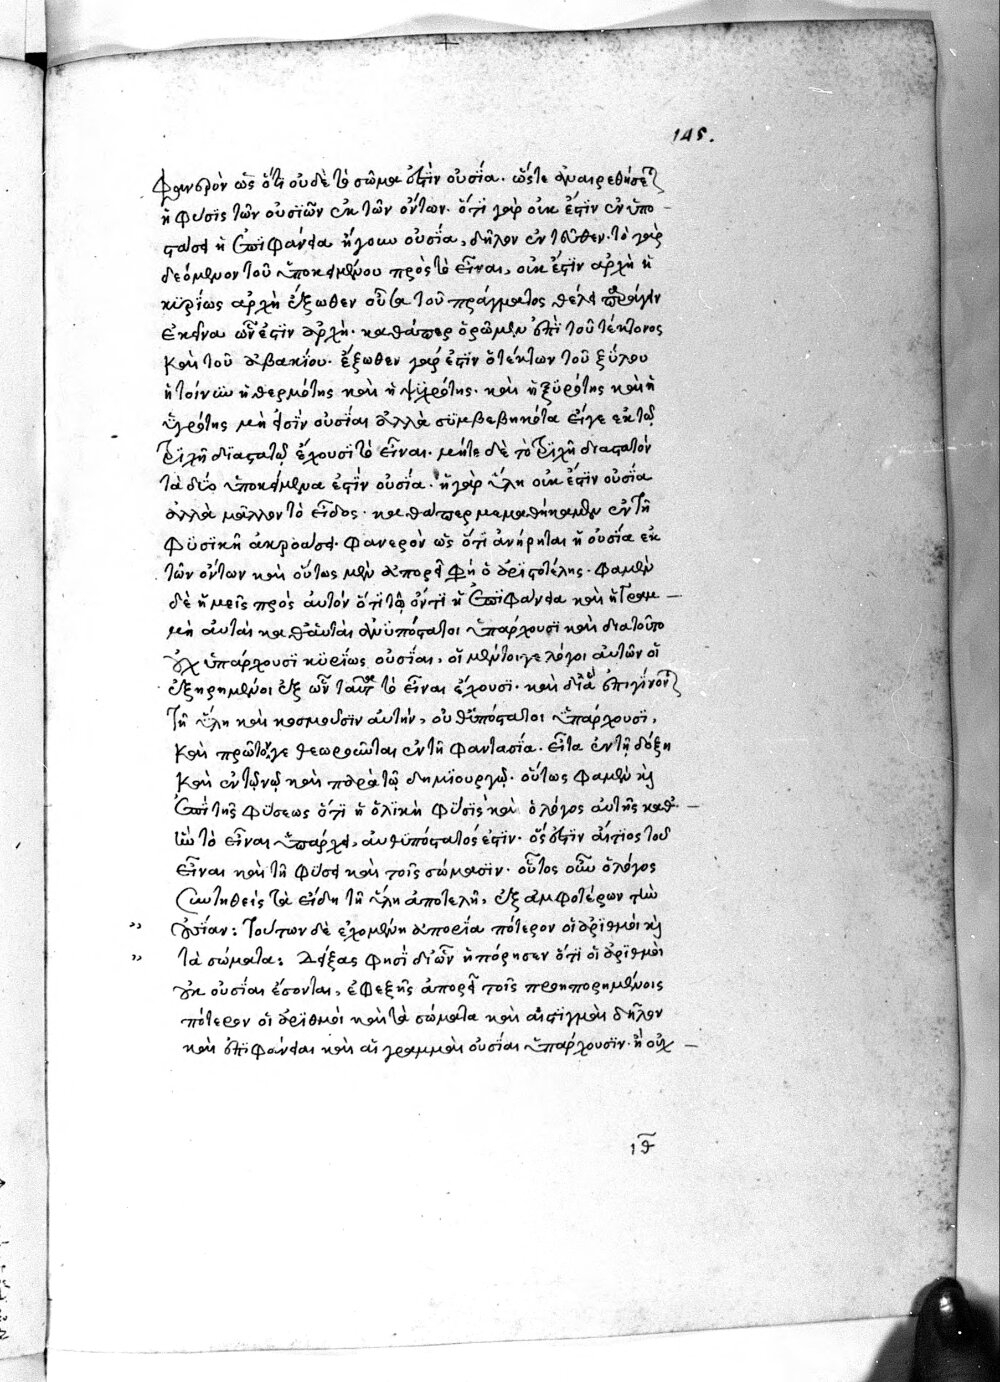 145.
φανερὸν ὡς ὅτι οὐδὲ τὸ σῶμα ἐστὶν οὐσία. ὥστε ἀναιρεθήσεται
ἡ φύσις τῶν οὐσιῶν ἐκ τῶν ὄντων. ὅτι γὰρ οὐκ ἔστιν ἐν ὑπο
στάσει ἡ ἐπιφάνεια ἤγουν οὐσία, δῆλον ἐντεῦθεν. τὸ γὰρ
δεόμενον τοῦ ὑποκειμένου πρὸς τὸ εἶναι, οὐκ ἔστιν ἀρχὴ ἡ
κυρίως ἀρχὴ ἔξωθεν οὖσα τοῦ πράγματος θέλει
ἐκεῖνα ὧν ἐστιν ἀρχή. καθάπερ ὁρῶμεν ἐπὶ τοῦ τέκτονος
καὶ τοῦ ἀβακίου. ἔξωθεν γάρ ἐστιν ὁ τέκτων τοῦ ξύλου
ἡ τοίνυν ἡ θερμότης καὶ ἡ ψυχρότης. καὶ ἡ ξυρότης καὶ ἡ
ὑγρότης μὴ εἰσὶν οὐσίαι ἀλλὰ συμβεβηκότα εἴγε ἐκ τῷ
τριχῆ διαστατῷ ἔχουσι τὸ εἶναι. μήτε δὲ τὸ τριχῆ διαστατόν
τὰ δύο ὑποκείμενα ἐστὶν οὐσία. ἡ γὰρ ὕλη οὐκ ἔστιν οὐσία
ἀλλὰ μᾶλλον τὸ εἶδος. καθάπερ μεμαθήκαμεν ἐν τῇ
φυσικῇ ἀκροάσει. φανερὸν ὡς ὅτι ἀνῄρηται ἡ οὐσία ἐκ
τῶν ὄντων καὶ οὕτως μὲν ἀπορεῖ φη ὁ ἀριστοτέλης. φαμὲν
δὲ ἡμεῖς πρὸς αὐτὸν ὅτι τῷ ὄντι ἡ ἐπιφάνεια καὶ ἡ γραμ
μὴ αὐταὶ καθ' αὑτὰς ἀνυπόστατοι ὑπάρχουσι καὶ διατοῦτο
οὐχ ὑπάρχουσι κυρίως οὐσίαι, οἱ μέντοιγε λόγοι αὐτῶν οἱ
ἐξῃρημένοι ἐξ ὧν ταῦτα τὸ εἶναι ἔχουσι. καὶ ἐπιγίνονται
τῇ ὕλῃ καὶ κοσμοῦσιν αὐτήν, αὐθυπόστατοι ὑπάρχουσι,
καὶ πρῶτόν γε θεωροῦνται ἐν τῇ φαντασία. εἶτα ἐν τῇ δόξῃ
καὶ ἐν τῷ νῷ καὶ παρὰ τῷ δημιουργῷ. οὕτως φαμὲν καὶ
ἐπὶ τῆς φύσεως ὅτι ἡ ὁλικὴ φύσις καὶ ὁ λόγος αὐτῆς καθ'
ὃν τὸ εἶναι ὑπάρχει, αὐθυπόστατός ἐστιν. ὅς ἐστιν αἴτιος τοῦ
εἶναι καὶ τῇ φύσει καὶ τοῖς σώμασιν. οὗτος οὖν ὁ λόγος
συντηθεὶς τὰ εἴδη τῇ ὕλῃ ἀποτελῆ, ἐξ ἀμφοτέρων τὴν
οὐσίαν: τούτων δὲ ἐχομένη ἀπορία πότερον οἱ ἀριθμοὶ καὶ
τὰ σώματα: δείξας φησὶ δι' ὧν ἠπόρησεν ὅτι οἱ ἀριθμοὶ
οὐκ οὐσίαι ἔσονται, ἐφεξῆς ἀπορεῖ τοῖς προηπορημένοις
πότερον οἱ ἀριθμοὶ καὶ τὰ σώματα καὶ αἱ στιγμαὶ δῆλον
καὶ ἐπιφάνειαι καὶ αἱ γραμμαὶ οὐσίαι ὑπάρχουσιν. ἢ οὐχ
ιθ